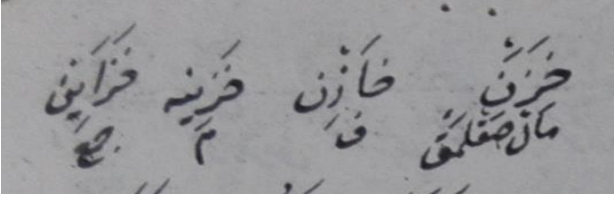 خَزَنَ خَازِن خَزِينه خَزَايِن
مال صقلمق ف م جمع